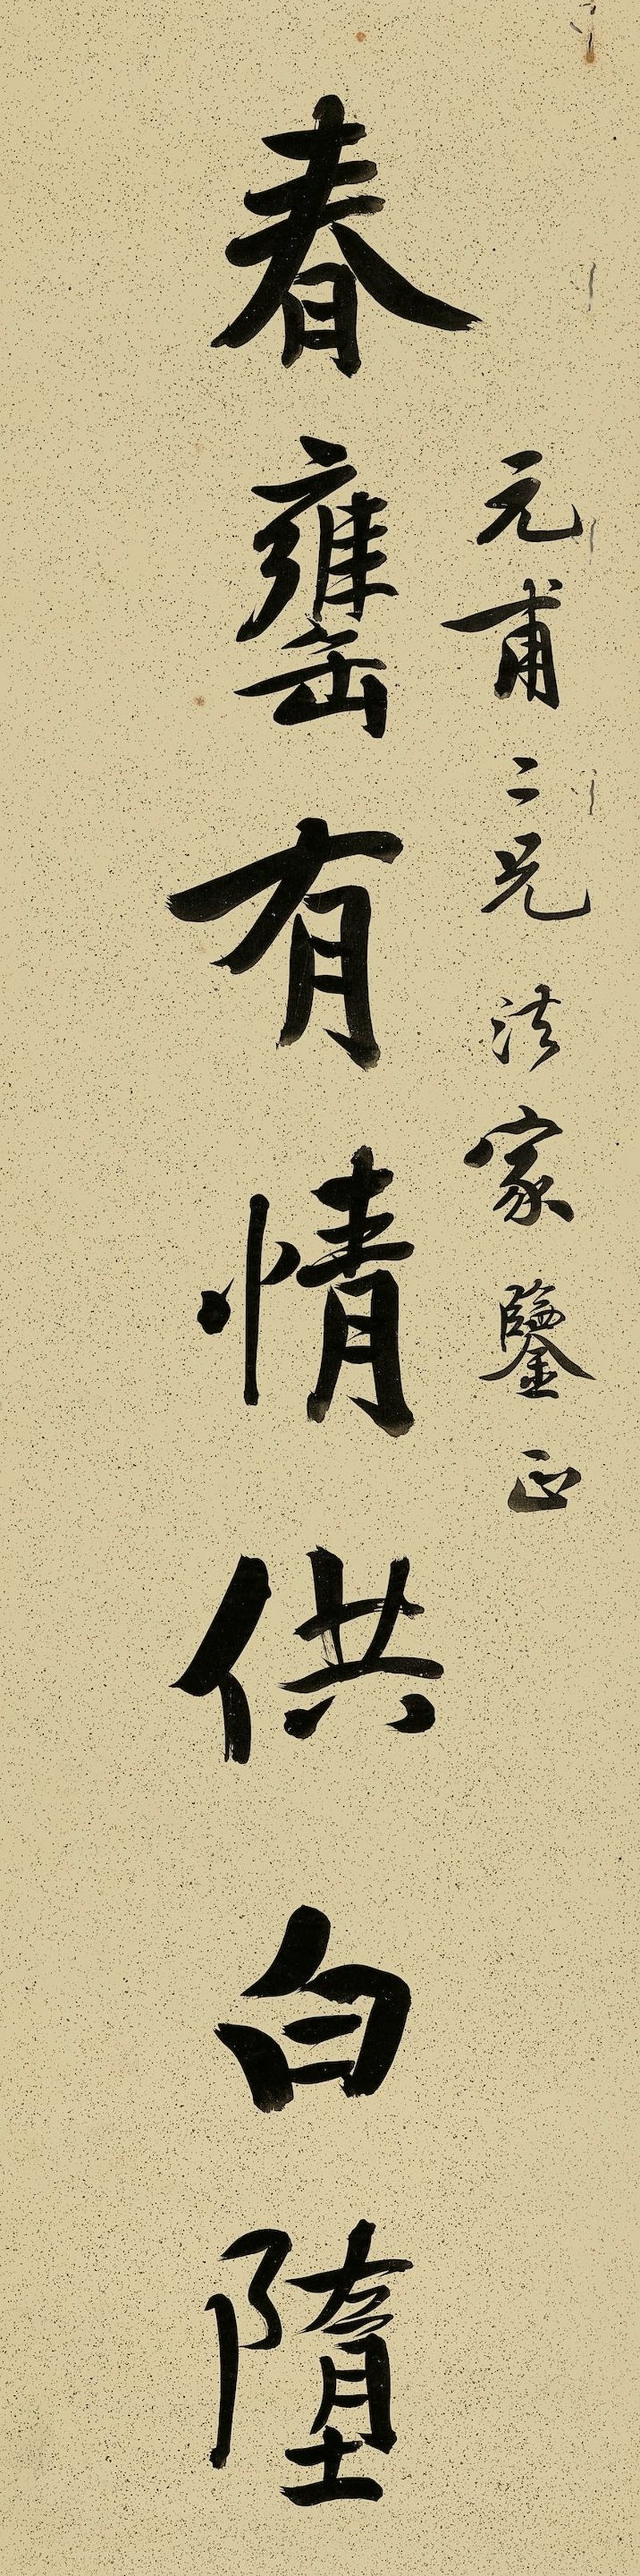 元甫二兄法家鑒正
春罋有情供白墮